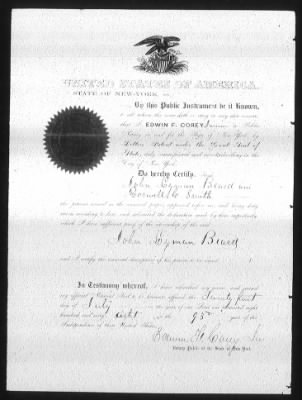 UNITED STATES OF AMERICA.
STATE OF NEW-YORK, ss.
By this Public Instrument be it Known,
to all whom the same doth or may in any wise concern
that I EDWIN F. COREY Junior a Public
Notary in and for the State of New York by
Letters Patent under the Great Seal of
State, duly commissioned and sworn dwelling in the
City of New York
Do hereby Certify, that
John Hyman Beard and
Smith
the persons named in the annexed papers appeared before me, and being duly
John Hyman Beard
and I certify the annexed description of his person to be correct
In Testimony whereof, I have subscribed my name, and caused
my official Notarial Seal to be hereunto affixed the Twenty first
day of July in the year of our Lord one thousand eight
hundred and sixty eight in the 93d year of the
Independence of these United States.
Edwin F. Corey Jr
Notary Public of the State of New York.